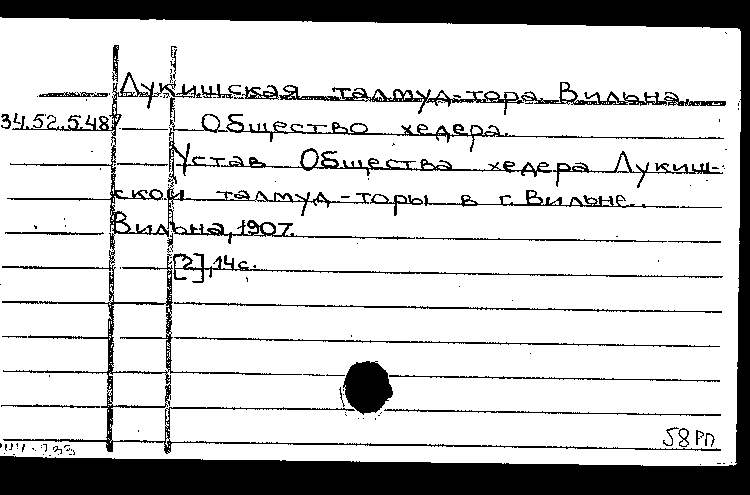 Лукишская талмуд-тора. Вильна.
34.52.5.487 Общество хедера.
Устав Общества хедера Лукиш-
ской талмуд-торы в г. Вильне..
Вильна, 1907.
[2], 14 с.
58 РП